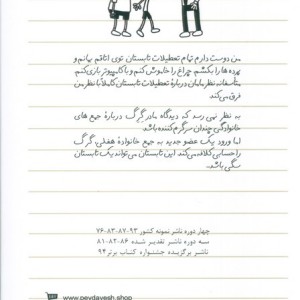 من دوست دارم تمام تعطیلات تابستان توی اتاقم بمانم و
پرده‌ها را بکشم، چراغ را خاموش کنم و با کامپیوتر بازی کنم.
متأسفانه، نظر مامان درباره‌ی تعطیلات تابستان کاملاً با نظر من
فرق می‌کند.
به نظر نمی‌رسد که دیدگاه مادر گرگ درباره‌ی جمع های
خانوادگی چندان سرگرم‌کننده باشد.
اما ورود یک عضو جدید به جمع خانواده‌ی هفلی، گرگ
را حسابی کلافه می‌کند. این تابستان می‌تواند یک تابستان
سگی باشد.
چهار دوره ناشر نمونه کشور ۹۳-۸۷-۸۳-۷۶
سه دوره ناشر تقدیر شده ۸۶-۸۲-۸۱
ناشر برگزیده جشنواره کتاب برتر ۹۴
www.peydayesh.shop